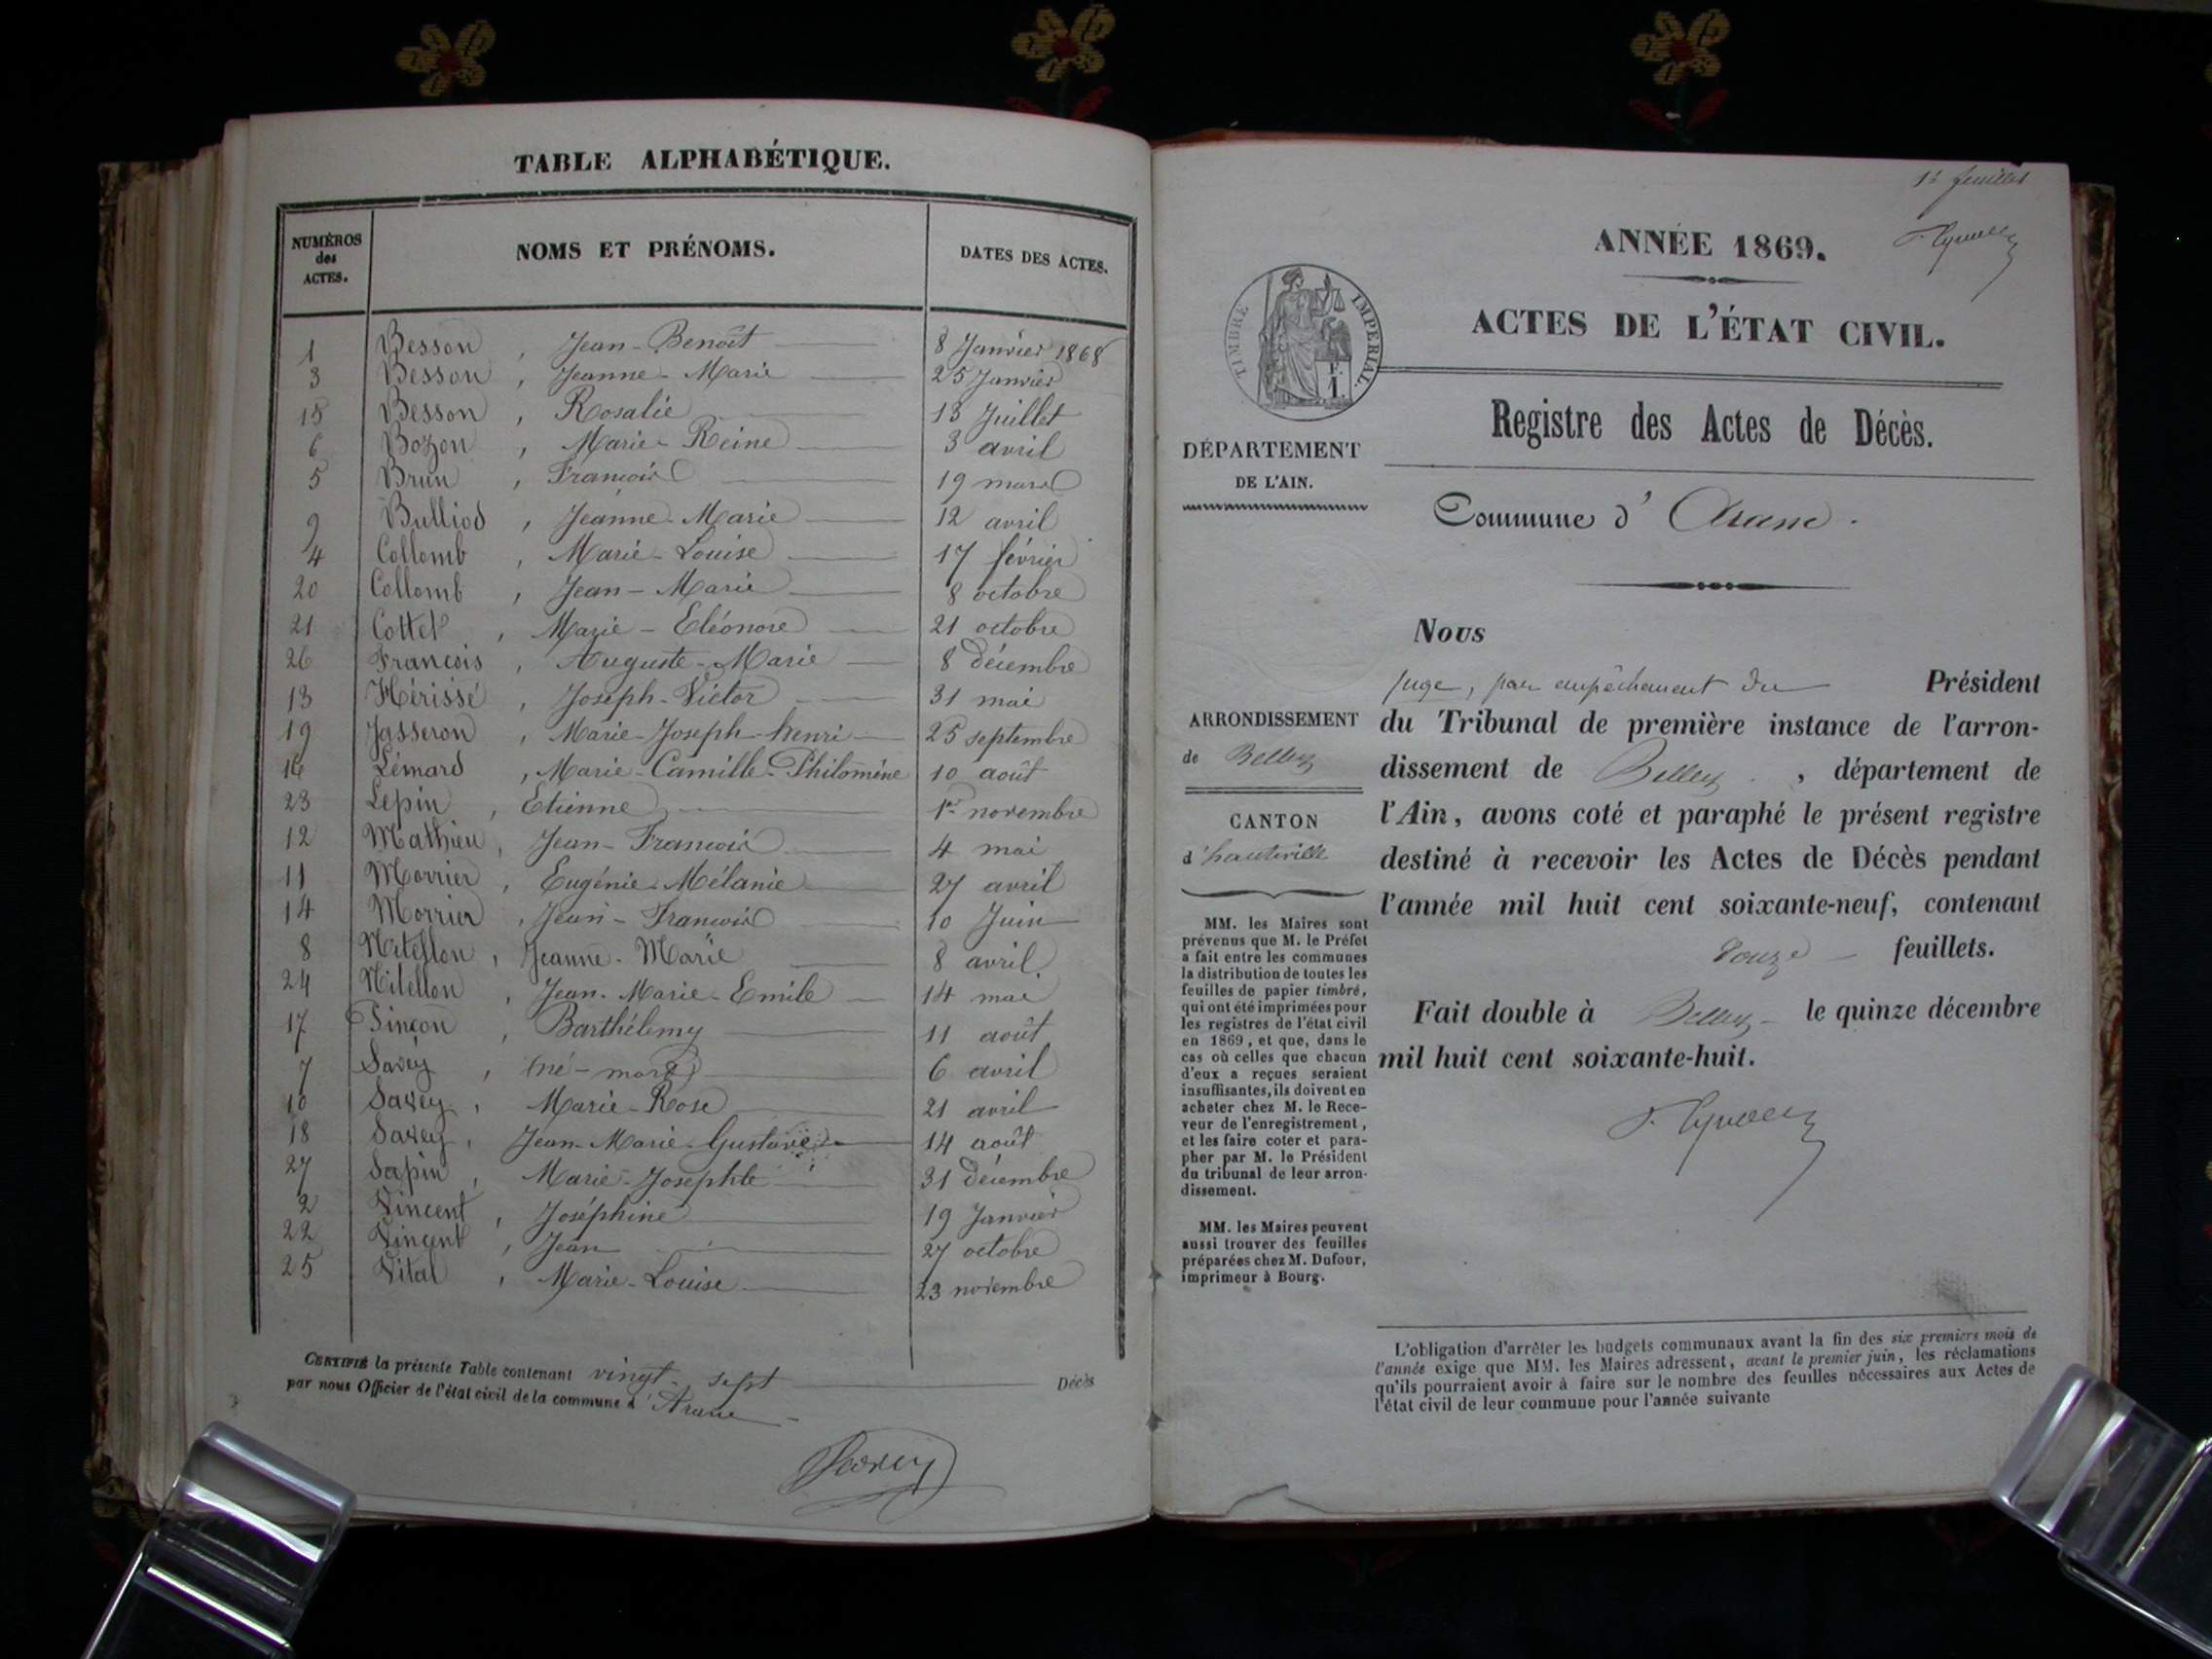 TABLE ALPHABÉTIQUE.
NUMÉROS des ACTES.
NOMS ET PRÉNOMS.
DATES DES ACTES.
1 Besson, Jean-Benoît 8 Janvier 1868
3 Besson, Jeanne-Marie 25 Janvier
15 Besson, Rosalie 13 Juillet
6 Bozon, Marie-Reine 3 avril
5 Brun, François 19 mars
9 Bulliod, Jeanne-Marie 12 avril
4 Collomb, Marie-Louise 17 février
20 Collomb, Jean-Marie 8 octobre
21 Cottet, Marie-Eléonore 21 octobre
26 François, Auguste-Marie 8 décembre
13 Hérissé, Joseph-Victor 31 mai
19 Jasseron, Marie-Joseph-henri 25 septembre
16 Lémard, Marie-Camille-Philomène 10 août
23 Lépin, Etienne 1er novembre
12 Mathieu, Jean-François 4 mai
11 Morrier, Eugénie-Mélanie 27 avril
14 Morrier, Jean-François 10 Juin
8 Jeanne-Marie 8 avril
24 Jean-Marie-Emile 14 mai
17 Pinçon, Barthélemy 11 août
7 Savey, (né-mort) 6 avril
10 Savey, Marie-Rose 21 avril
18 Savey, Jean-Marie-Gustave 14 août
27 Sapin, Marie-Josephte 31 décembre
2 Vincent, Joséphine 19 Janvier
22 Vincent, Jean 27 octobre
25 Vital, Marie-Louise 23 novembre
CERTIFIÉ la présente Table contenant vingt-sept Décès
par nous Officier de l'état civil de la commune d'Aranc
Savey
1er feuillet
ANNÉE 1869.
ACTES DE L'ÉTAT CIVIL.
TIMBRE IMPERIAL.
F. 1.
Registre des Actes de Décès.
DÉPARTEMENT
DE L'AIN.
Commune d'Aranc.
ARRONDISSEMENT
de Belley
CANTON
d'hauteville
MM. les Maires sont
prévenus que M. le Préfet
a fait entre les communes
la distribution de toutes les
feuilles de papier timbré,
qui ont été imprimées pour
les registres de l'état civil
en 1869, et que, dans le
cas où celles que chacun
d'eux a reçues seraient
insuffisantes, ils doivent en
acheter chez M. le Rece-
veur de l'enregistrement,
et les faire coter et para-
pher par M. le Président
du tribunal de leur arron-
dissement.
MM. les Maires peuvent
aussi trouver des feuilles
préparées chez M. Dufour,
imprimeur à Bourg.
Nous
juge, par empêchement du Président
du Tribunal de première instance de l'arron-
dissement de Belley, département de
l'Ain, avons coté et paraphé le présent registre
destiné à recevoir les Actes de Décès pendant
l'année mil huit cent soixante-neuf, contenant
douze feuillets.
Fait double à Belley le quinze décembre
mil huit cent soixante-huit.
L'obligation d'arrêter les budgets communaux avant la fin des six premiers mois de
l'année exige que MM. les Maires adressent, avant le premier juin, les réclamations
qu'ils pourraient avoir à faire sur le nombre des feuilles nécessaires aux Actes de
l'état civil de leur commune pour l'année suivante